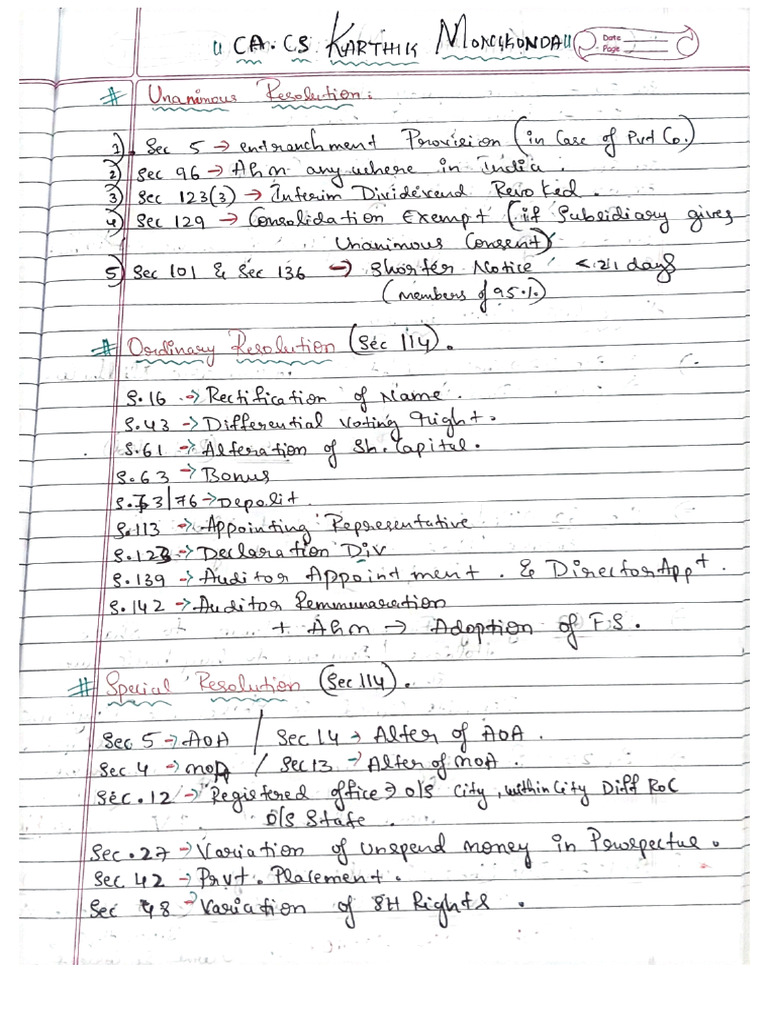 " CA. CS KARTHIK MONCHONDA "
Date
Page
# Unanimous Resolution:
1) Sec 5 → entranchment Provision (in Case of Pvt Co.)
2) Sec 96 → AGM any where in India.
3) Sec 123(3) → Interim Dividevend Revoked.
4) Sec 129 → Consolidation Exempt (if Subsidiary gives
Unanimous Consent)
5) Sec 101 & Sec 136 → Shorter Notice < 21 days
(members of 95%)
# Ordinary Resolution (Sec 114).
S.16 → Rectification of Name.
S.43 → Differential Voting right.
S.61 → Alteration of Sh. Capital.
S.63 → Bonus
S.73/76 → Deposit.
S.113 → Appointing Representative
S.123 → Declaration Div
S.139 → Auditor Appointment. & Director Appt.
S.142 → Auditor Remmunaration
+ AGM → Adoption of F.S.
# Special Resolution (Sec 114).
Sec 5 → AOA / Sec 14 → Alter of AOA.
Sec 4 → MOA / Sec 13 → Alter of MOA.
Sec.12 → Registered office → O/S City, within City Diff RoC
O/S State.
Sec.27 → Variation of unspend money in Prospectus.
Sec 42 → Prvt. Placement.
Sec 48 → Variation of SH Rights.